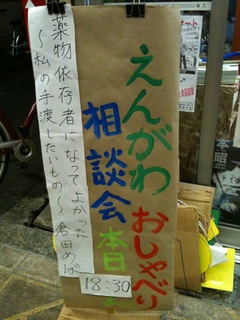 えんがわ
おしゃべり
相談会
本日
薬物依存者になってよかった
～私の手渡したいもの～
倉田めば
18:30